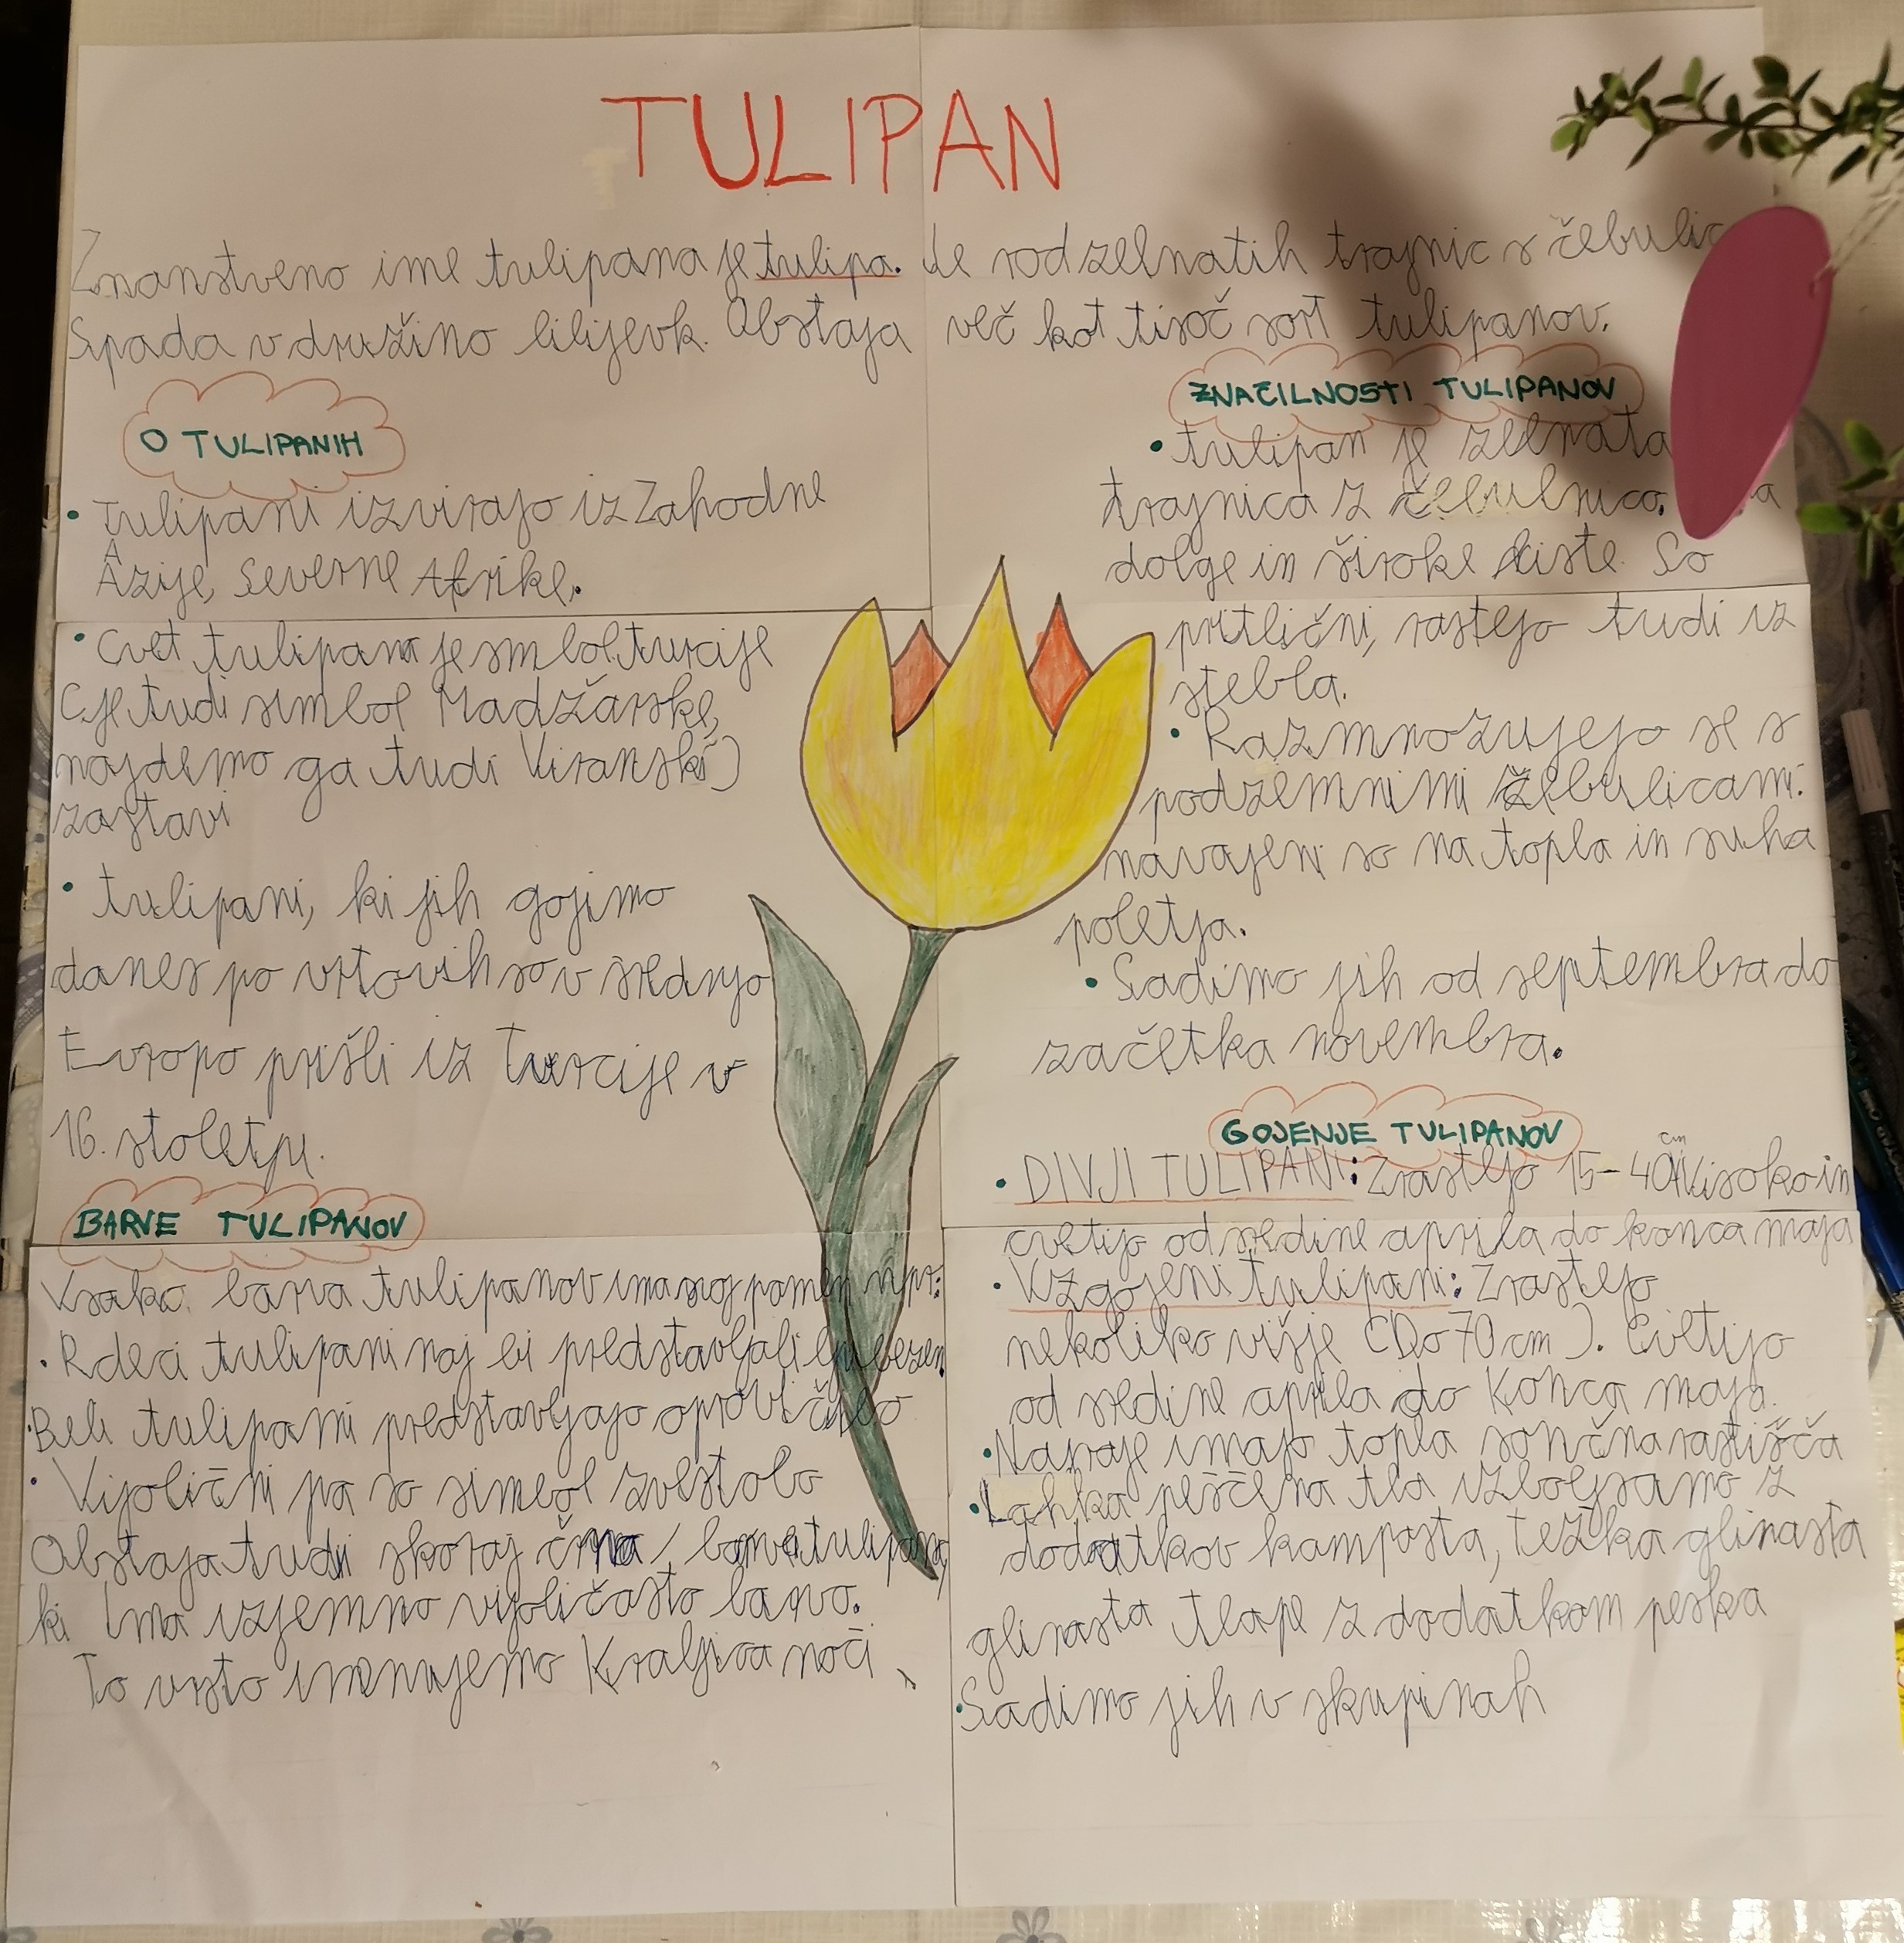 TULIPAN
Znanstveno ime tulipana je tulipa. Je rod zelnatih trajnic s čebulic
Spada v družino lilijevk. Obstaja več kot tisoč sort tulipanov.
O TULIPANIH
• Tulipani izvirajo iz Zahodne
Azije, Severne Afrike.
• Cvet tulipana je simbol turcije
(je tudi simbol Madžarske,
najdemo ga tudi V iranski)
zastavi
• tulipani, ki jih gojimo
danes po vrtovih so v srednjo
Evropo prišli iz Turcije v
16. stoletju.
BARVE TULIPANOV
Vsaka barva tulipanov ima svoj pomen npr:
• Rdeci tulipani naj bi predstavljali ljubezen
• Beli tulipani predstavljajo opravičilo
• Vijolični pa so simbol zvestobo
Obstaja tudi skoraj črna barva tulipana,
ki Ima izjemno vijoličasto barvo.
To vrsto imenujemo Kraljica noči
ZNAČILNOSTI TULIPANOV
• tulipan je zelnata
trajnica z čebulnico.
dolge in široke liste. So
pritlični, rastejo tudi iz
stebla.
• Razmnožujejo se s
podzemnimi čebulicami.
navajeni so na topla in suha
poletja.
• Sadimo jih od septembra do
začetka novembra.
GOJENJE TULIPANOV
• DIVJI TULIPANI: Zrastejo 15-40 cm visoko in
cvetijo od sredine aprila do konca maja
• Vzgojeni tulipani: Zrastejo
nekoliko višje (Do 70 cm). Cvetijo
od sredine aprila do Konca maja.
• Naraje imajo topla sončna rastišča
• Lahka peščena tla izboljsamo z
dodatkov komposta, težka glinasta
glinasta tlape z dodatkom peska
• Sadimo jih v skupinah